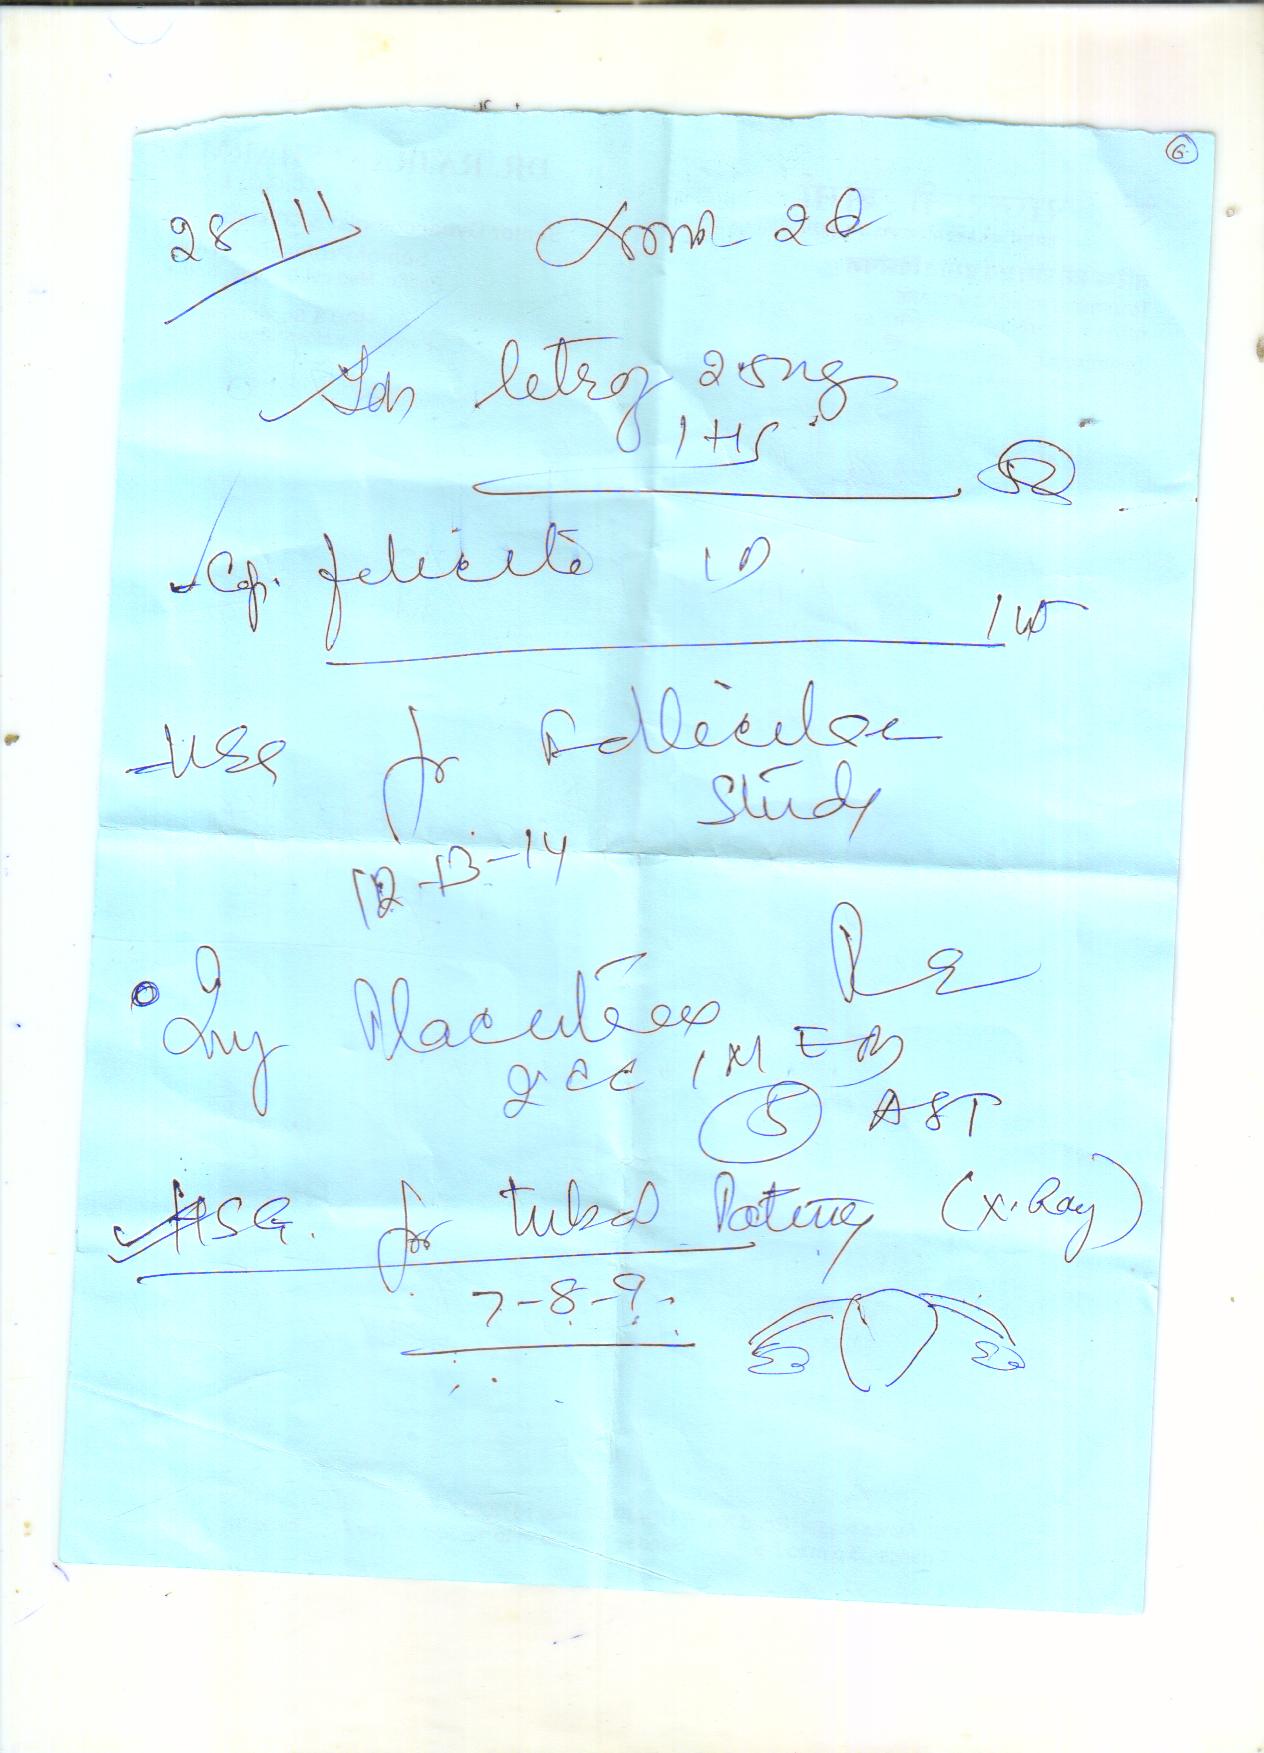 6
28/11
Tab letroz 2.5mg
1 HS
Cap. felicita 1D
1W
- USG for Follicular
Study
12-13-14
Inj Placentrex
2cc IM
5 AST
HSG. for tubal Patency (X.Ray)
7-8-9.